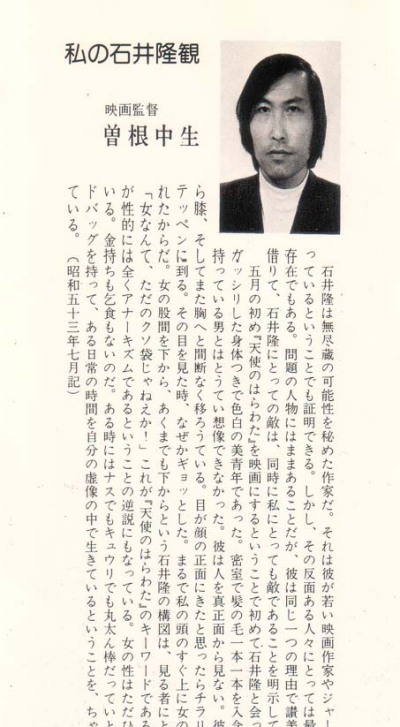 私の石井隆観
映画監督
曽根中生
石井隆は無尽蔵の可能性を秘めた作家だ。それは彼が若い映画作家やジャー
っているということでも証明できる。しかし、その反面ある人々にとっては最
存在でもある。問題の人物にはままあることだが、彼は同じ一つの理由で讃美
借りて、石井隆にとっての敵は、同時に私にとっても敵であることを明示して
五月の初め『天使のはらわた』を映画にするということで初めて石井隆と会っ
ガッシリした身体つきで色白の美青年であった。密室で髪の毛一本一本を入念
持っている男とはとうてい想像できなかった。彼は人を真正面から見ない。彼
ら膝、そしてまた胸へと間断なく移ろうている。目が顔の正面にきたと思ったらチラリ
テッペンに到る。その目を見た時、なぜかギョッとした。まるで私の頭のすぐ上に女の
れたからだ。女の股間を下から、あくまでも下からという石井隆の構図は、見る者にと
「女なんて、ただのクソ袋じゃねえか！」これが『天使のはらわた』のキーワードである
が性的には全くアナーキズムであるということの逆説にもなっている。女の性はただひ
いる。金持ちも乞食もないのだ。ある時にはナスでもキュウリでも丸太ん棒だっていと
ドバッグを持って、ある日常の時間を自分の虚像の中で生きているということを、ちゃ
ている。（昭和五十三年七月記）